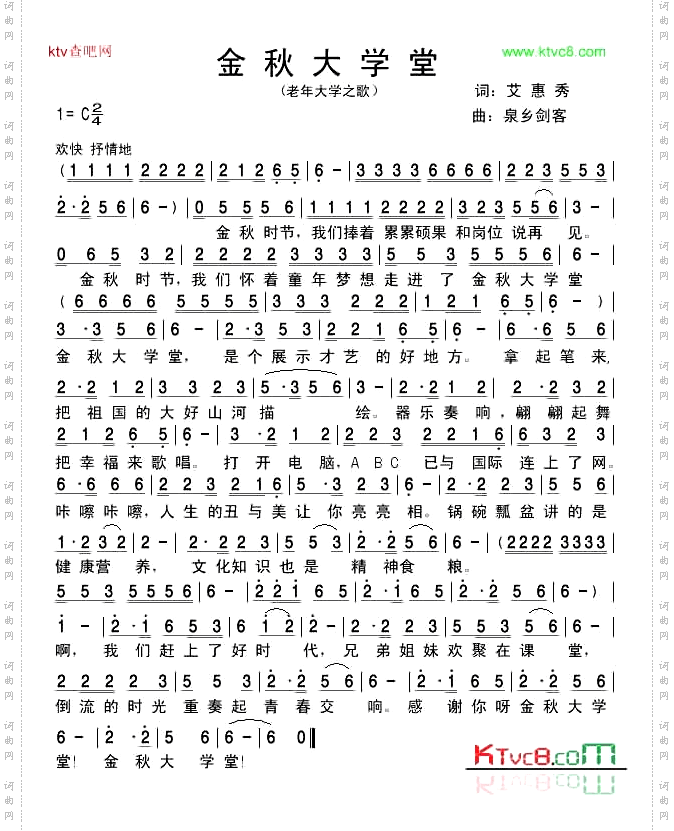 ktv查吧网
www.ktvc8.com
金秋大学堂
(老年大学之歌)
词: 艾惠秀
1=C 2/4
曲: 泉乡剑客
欢快 抒情地
(1 1 1 1 2 2 2 2 | 2 1 2 6 5 | 6 - | 3 3 3 3 6 6 6 6 | 2 2 3 5 5 3 |
2·2 5 6 | 6 - ) | 0 5 5 5 6 | 1 1 1 1 2 2 2 2 | 3 2 3 5 5 6 | 3 - |
金秋时节,我们捧着 累累硕果 和岗位 说再 见。
0 6 5 3 2 | 2 2 2 2 2 3 3 | 2 2 2 3 5 | 5 5 3 5 2 5 6 | 6 - |
金秋时节,我们怀着童年梦想走进了 金秋大学堂
(6 6 6 6 5 5 5 5 | 3 3 3 2 2 2 | 1 2 1 6 5 | 6 - ) |
3 ·3 5 6 | 6 - | 2·2 3 5 3 | 2 2 1 6 5 | 6 - | 6 ·3 2 3 |
金秋大学堂, 是个展示才艺的好地方。 拿起笔来,
2 ·2 1 2 | 3 3 2 3 | 5·3 5 6 | 3 - | 2·2 1 2 | 6 ·1 2 3 |
把祖国的大好山河描 绘。器乐奏响,翩翩起舞
2 1 2 1 6 | 2 - | 6 ·2 2 3 | 2 2 3 | 2 2 1 6 | 6 3 2 3 |
把幸福来歌唱。 打开电脑,A B C 已与 国际 连上了网。
6·6 6 6 | 2·3 2 3 | 2 2 1 6 | 5 ·5 5 6 | 6 - | 2·2 2 3 5 |
咔嚓咔嚓,人生的丑与美让你亮亮相。锅碗瓢盆讲的是
1·2 3 2 | 2 - | 2 ·2 2 3 | 5 5 3 | 2 ·2 5 6 | 6 - | (2 2 2 2 3 3 3 3 |
健康营养, 文化知识也是 精神食粮。
5 5 3 5 5 5 6 | 6 - | 2 2 1 6 1 | 2·1 6 5 | 2·2 1 6 5 | 6 - ) |
1 - | 2 ·1 6 5 | 3 3 2 3 | 6 1 2 | 2 ·2 2 3 | 5 5 3 5 6 | 6 - |
啊, 我们赶上了好时代, 兄弟姐妹欢聚在课堂,
2 2 2 2 3 | 5 5 3 5 | 2 3 | 2·2 5 6 | 6 - | 2·1 6 5 | 2·2 5 6 |
倒流的时光 重奏起青春交响。感谢你呀金秋大学
6 - | 2 ·2 | 5 6 | 6 - | 6 0 ‖
堂! 金秋大学堂!
KTVC8.com
词曲网